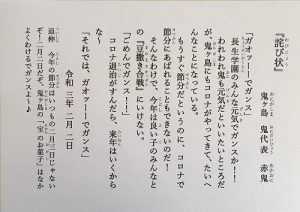 『詫び状』
鬼ヶ島 鬼代表 赤鬼
「ガオッーーでガンス」
長生学園のみんな元気でガンスか!!
われわれ鬼も元気だといいたいところだ
が、鬼ヶ島にもコロナがやってきて、たいへ
んなことになっている。
もうすぐ節分だというのに、コロナで
節分をあばれることもできないのだ!
そんなわけで、今年は良い子のみんなと
の『豆撒き合戦』にいけない。
「ごめんでガンス…!」
コロナ退治がすんだら、来年はいくから
な~
「それでは、ガオッーでガンス」
令和三年二月二日
追伸 今年の節分はいつもの二月三日じゃない
ぞ!二月二日だぞ。鬼ヶ島の"宝のお菓子"はなか
よくわけるでガンスよ。